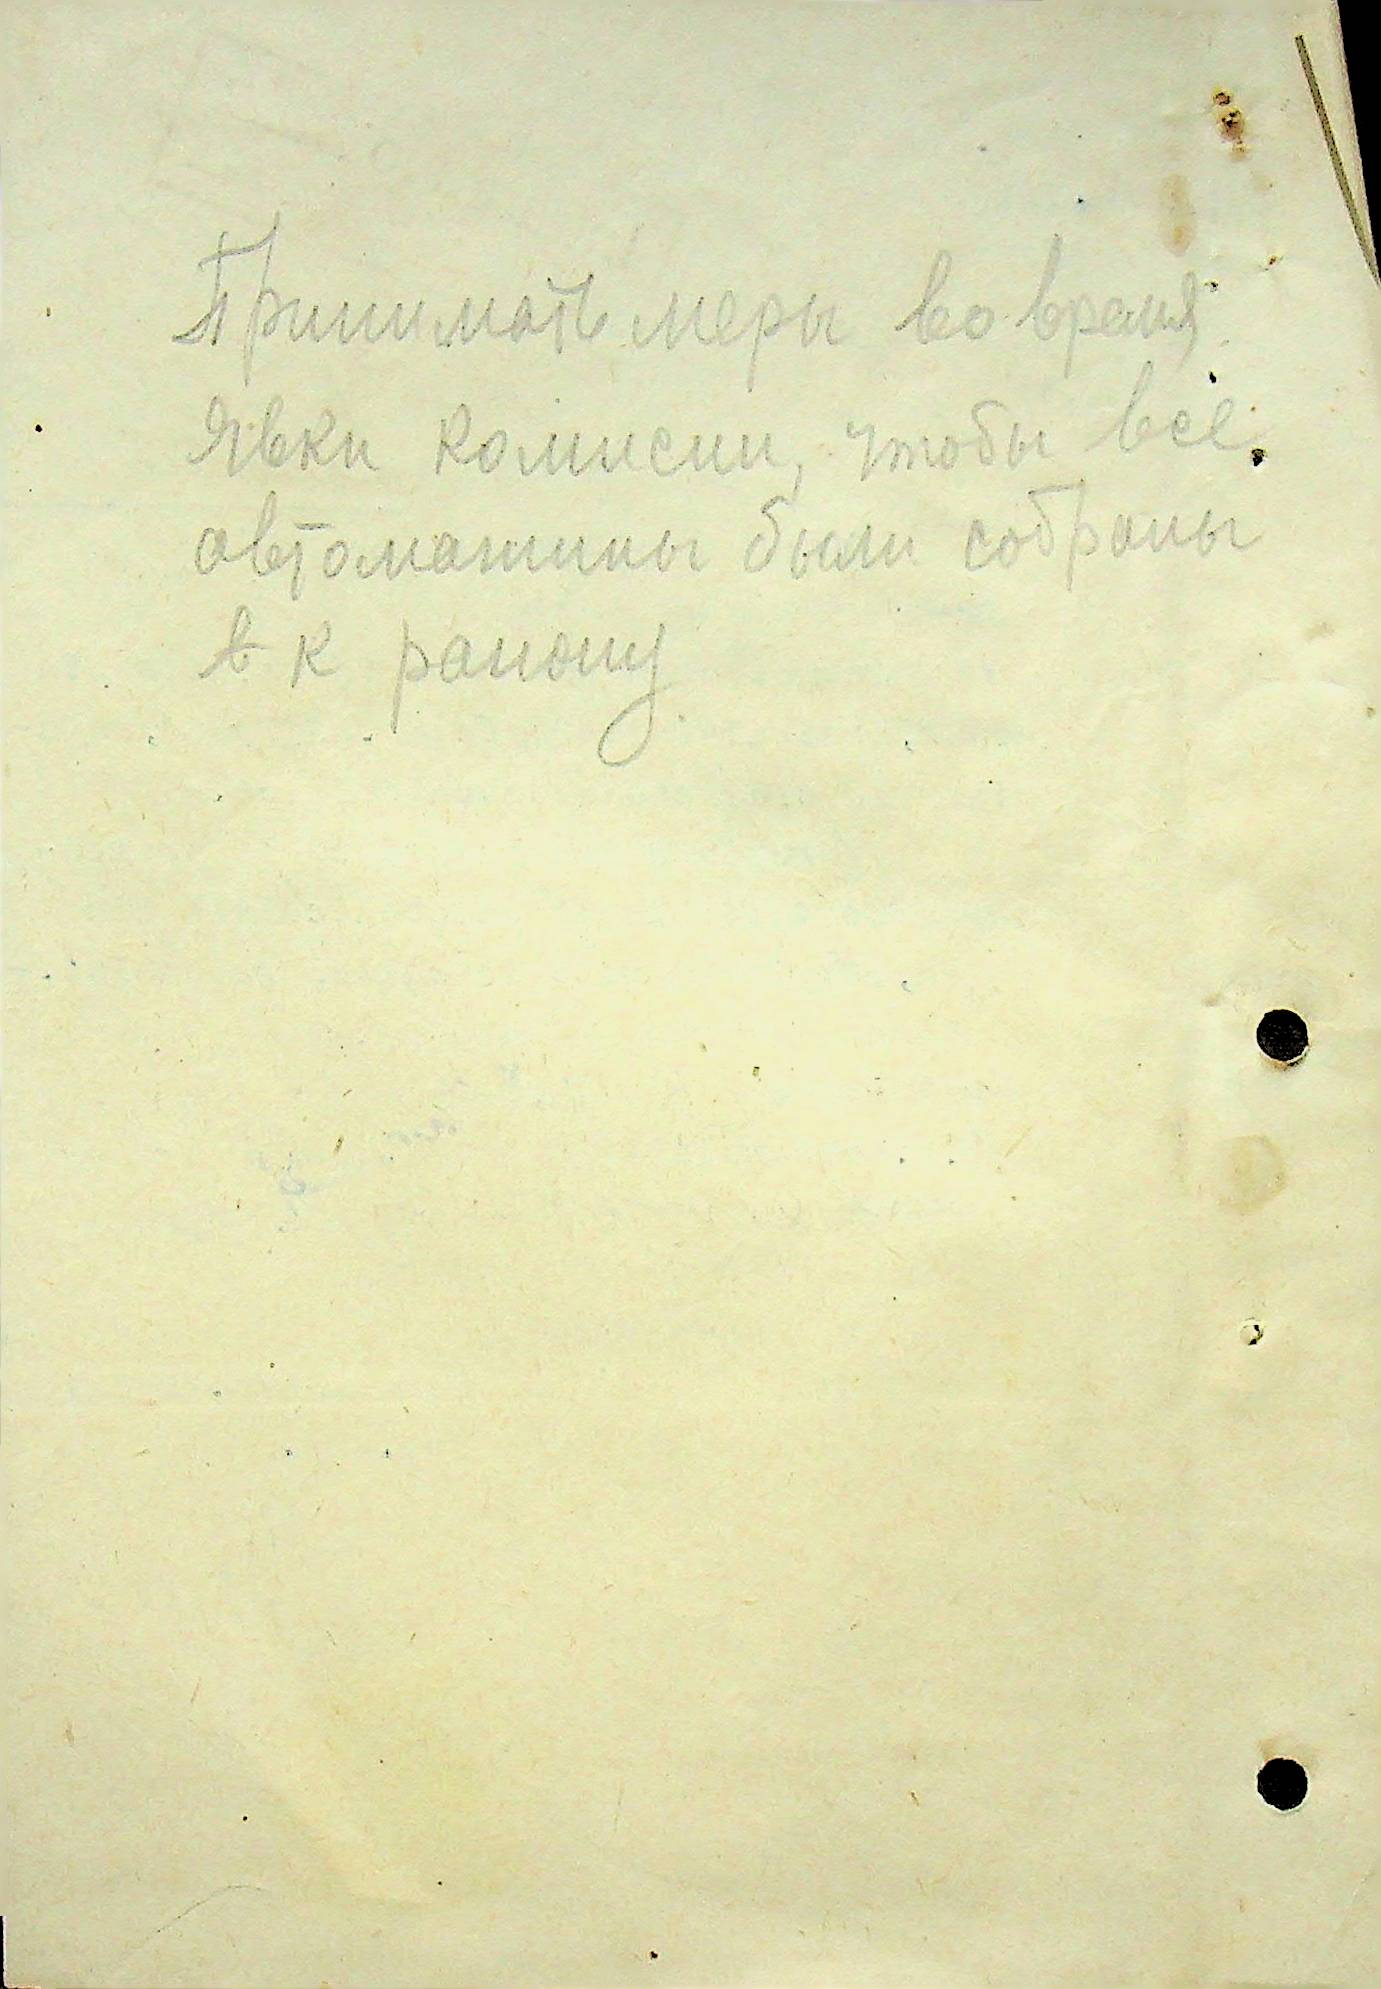 Принимать меры во время
явки комисии, чтобы все
автомашины были собраны
в к району